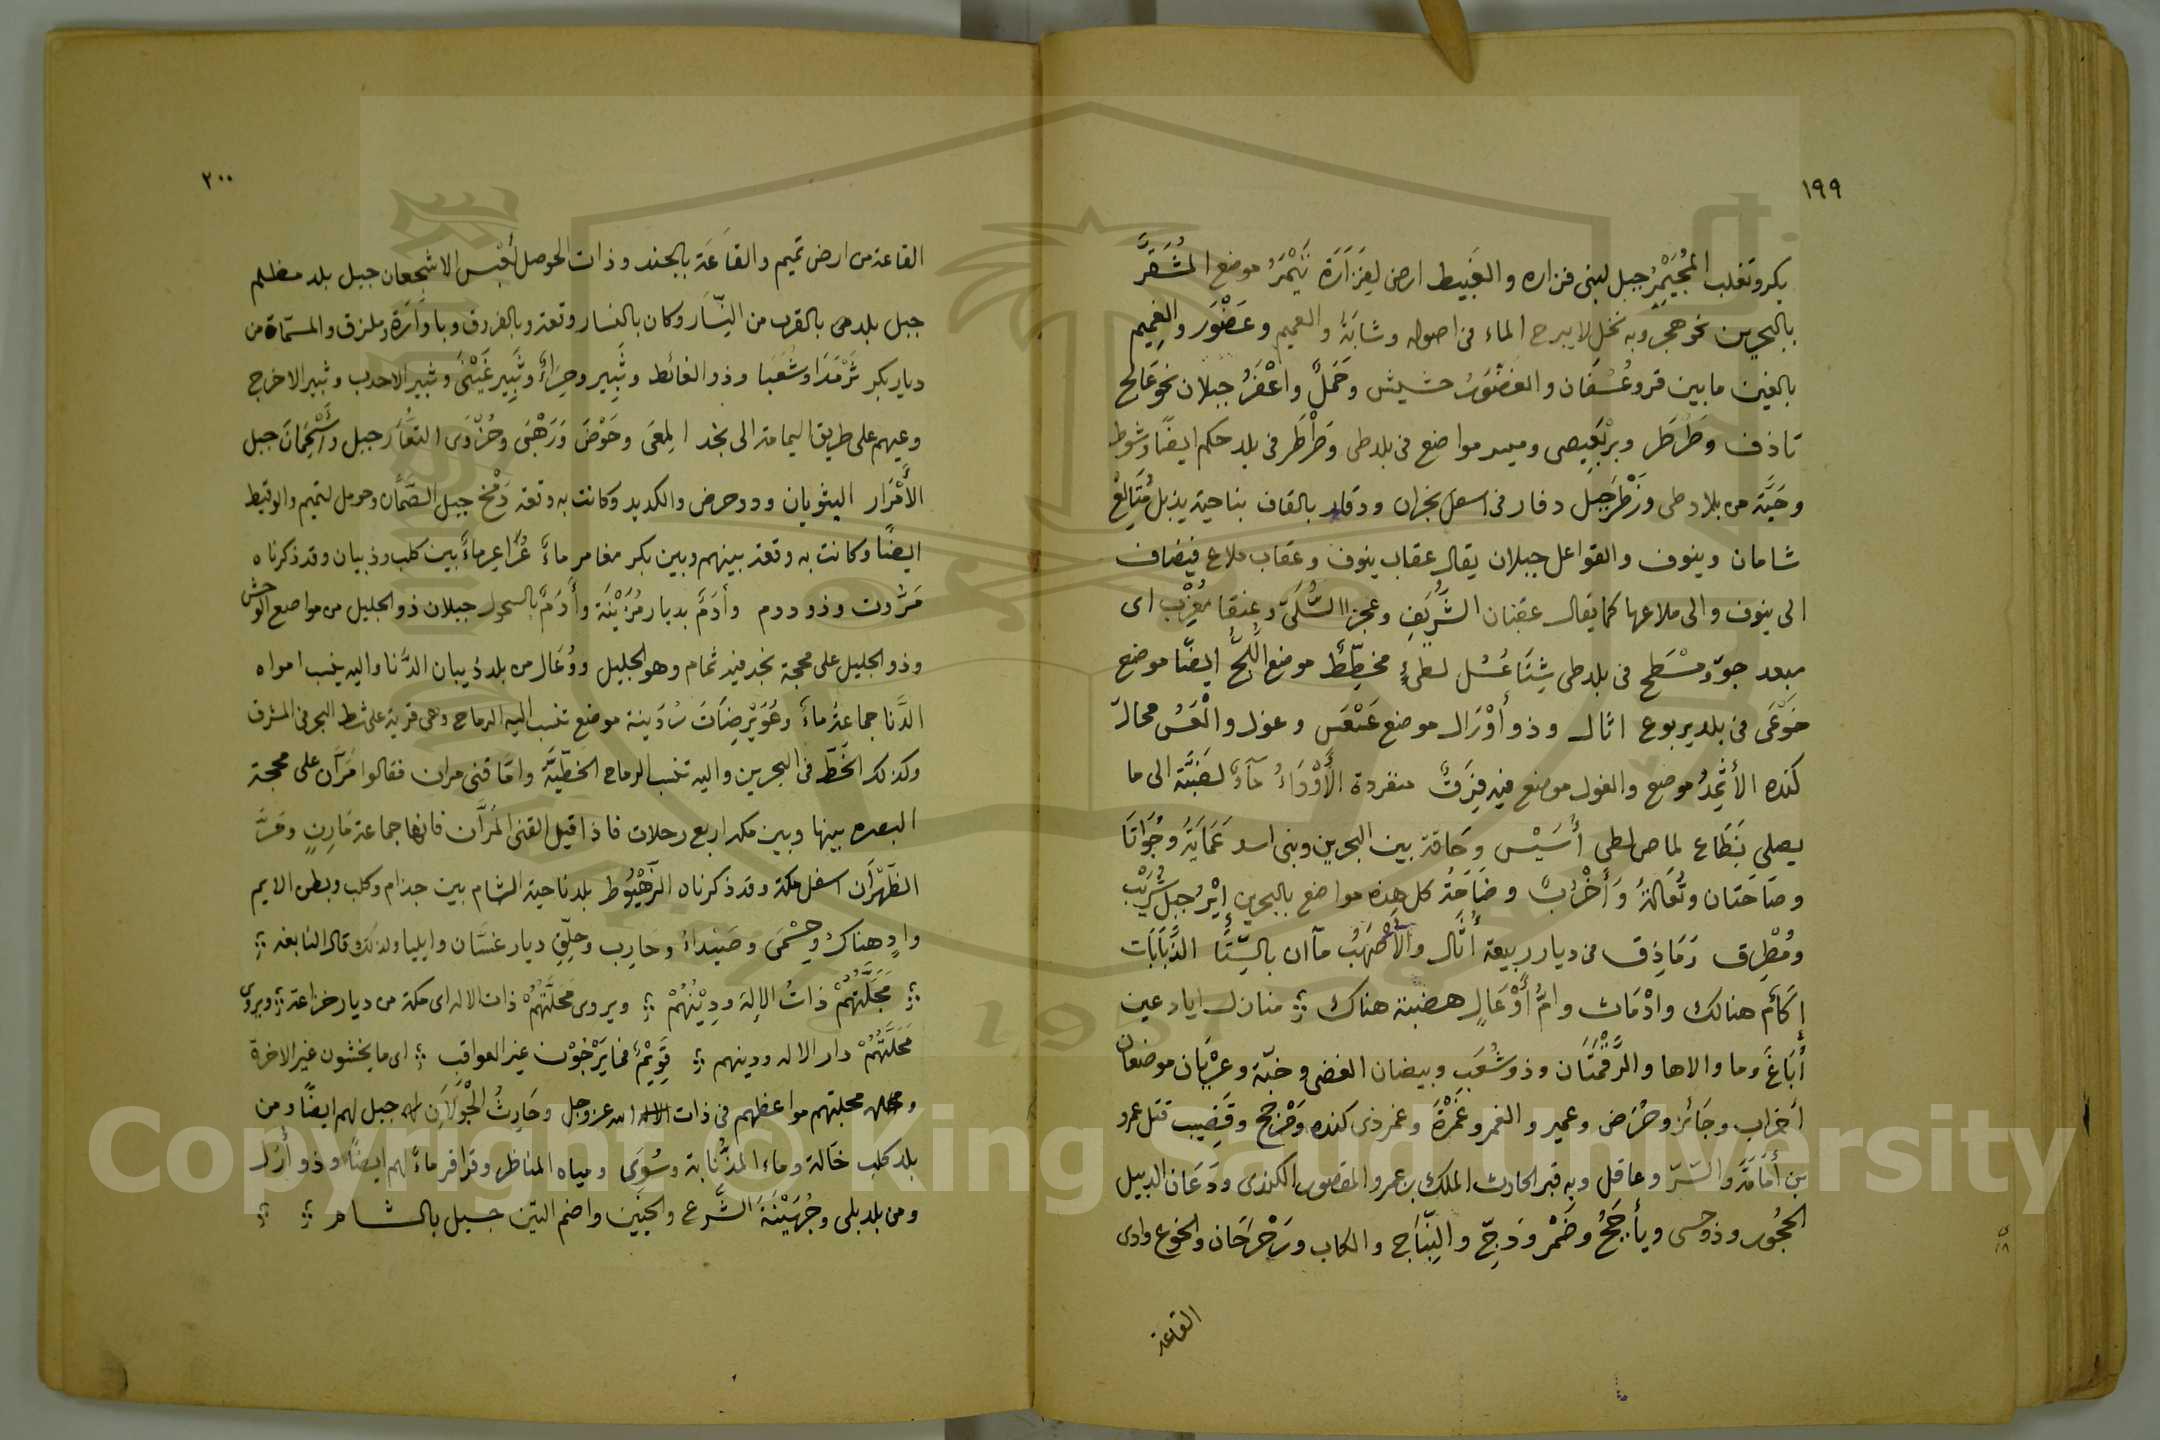 ١٩٩
بكر وتغلب المُجَيْمِر جبل لبنى فزاره والغَبيط ارض لِفَزَارَة تَيْمَرُ موضع المُشَقَّر
بالبحرين نحو هجر وبه نخل لا يبرح الماء فى اصوله وشابَةُ والعميم وعَضْوَر والغِميم
بالغين ما بين قر وعُسْفَان والغَضْوَرُ حشيش وحَمَلٌ واعْفَرُ جبلان نحو عَالج
تاذف وطَرْطَر وبرْبَعِيص وميسر مواضع فى بلد طى وطَرْطَر فى بلد حكم ايضًا وشوط
وحَيَّة من بلاد طى وزَطْر جبل دفار فى اسفل نجران ودقار بالقاف بناحية يذبل مُتَالِعْ
شامان وينوف والقواعل جبلان يقال عقاب ينوف وعقاب ملاع فيضاف
الى ينوف والى ملاعها كما يقال عقبان الشُّرَيفِ وعجز السُّلَىّ وعنقا مُغْرِب اى
مبعد جوّ ومسْطَح فى بلد طى شِتَا عُسُل لطىءٍ مخطِّطٌ موضع اللُّجُّ ايضًا موضع
خَوْعَى فى بلد يربوع اثال وذو أَوْرَال موضع عَسْعَس وعول والْعَسُ محالّ
كنده الأَثْمِدُ موضع والغول موضع فيه فِرَقٌ منفردة الأَوْدَاءُ مآءٌ لضَبَّة الى ما
يصلى بَنطَاع لماص لطى أُسَيْس وحَاقة بين البحرين وبنى اسد عَمَايَةُ وجُوَاثَا
وصَاحَتَان وتُعَالةُ وَأَخْرُبٌ وضَاحَةُ كل هذه مواضع بالبحرين إيْرُ جبل شُرَيْب
ومُطْرِق رَمَاذِق من ديار ربيعة أُثَال والأَصْهَبُ مآان بالسِّتَا الذَّبَابَات
إكَامٌ هنالك وادْمَاث وامُّ أَوْعَالٍ هضبة هناك ؞ منازل اياد عين
أَبَاغَ وما والاها والرَّقْمَتَان وذو شُعَبٍ وبيضان الغضى وخبّة وعرْيَان موضعان
أخراب وجَائز وحُرَض وعمير والغمر وغَمْرَة وغمر ذى كنده وَمَرْجح وقَضِيب قتل عمرو
بن أُمَامَةَ والسّرّ وعاقل وبه قبر الحارث الملك بن عمرو المقصور الكندى ودَعَان الدبيل
الحُجُور وذو حسى ويأجَجُ وضَمْر ودَجّ والبّنَاج والكاب ورَحْرَحَان والخوع وادى
القاعة
٢٠٠
القاعة من ارض تميم والقاعَة بالجند وذات الحوصل لُعْبُس الاشجعان جبل بلد مظلم
جبل بلد من بالقرب من النِّسَار وكان بالنسار وقعة وبالفروق وباوَارَة وملزق والمسمّاة من
ديار بكر ثَرْمَدَا وشُعَبَا وذو الغائط وثَبِير وحِرَاءٌ وثَبِير غَيْنَى وثبير الاحدب وثبير الاخرج
وعيهم على طريق اليمامة الى نجد المِعَى وحَوْضَ وَرَهْبَى وحُزْوَى التعَّار جبل وأَسْحِمَانَ جبل
الأَمْرَار اليثوبان وذو حرض والكديد وكانت به وقعة دَمْخ جبل الصَّمَّان وحومل لتميم والوقيط
ايضًا وكانت به وقعة بينهم وبين بكر مغامر ماءٌ عُرَاعِر ماءٌ بين كلب وذبيان وقد ذكرناه
مَرَّوت وذو دوم وأَدَمَ بديار مُزَيْنَة وأَدَمَّ بالسحول جبلان ذو الجليل من مواضع الوحش
وذو الجليل على محجة نجد فيه ثمام وهو الجليل ووُعَال من بلد ذيبان الدَّنا واليه ينسب امواه
الدَّنا جماعة ماءٌ وعُوَيْرِضَاتَ رُدَينة موضع تنسب اليه الرماح وهى قرية على شط البحر فى المشرق
وكذلك الخَطّ فى البحرين واليه تنسب الرماح الخَطّيَّةُ وامّا قنى مران فقالوا مَرّان على محجة
البصره بينها وبين مكه اربع رحلات فاذا قيل القنى المُرَّان فانها جماعة مَارِنٍ ومَرَّ
الظَّهْرَان اسفل مكة وقد ذكرناه الرَّهْيُوط بلد ناحية الشام بين جذام وكلب وبطن الايم
وادٍ هناك وحِسْمَى وصَيْداءُ وحَارِب وجِلِّق ديار غسّان وايليا ولذلك قال النابغه ؞
؞ مَجَلَّتُهُمْ ذاتُ الإلهِ ودِيْنُهُمْ ؞ ويروى مَحَلَّتُهُمْ ذات الاله اى مكة من ديار خزاعة ؞ ويروى
مَحَلَّتُهُمْ دار الاله ودينهم ؞ قَوِيْمٌ فما يَرْجُوْنَ غير العواقب ؞ اى ما يخشون غير الاخرة
ومجلتهم مواعظهم فى ذات الاله الله عز وجل وحَارِثُ الجَوْلَانِ جبل لهم ايضًا ومن
بلد كلب خَالة وماء الذُّنابة وسُوَى ومياه المناظر وقراقر ماءٌ لهم ايضًا وذو أُرُل
ومن بلد بلى وجُهَيْنَةَ الشَّرع والجنَين واضم التين جبل بالشام ؞ ؞
Copyright © King Saud University
1957